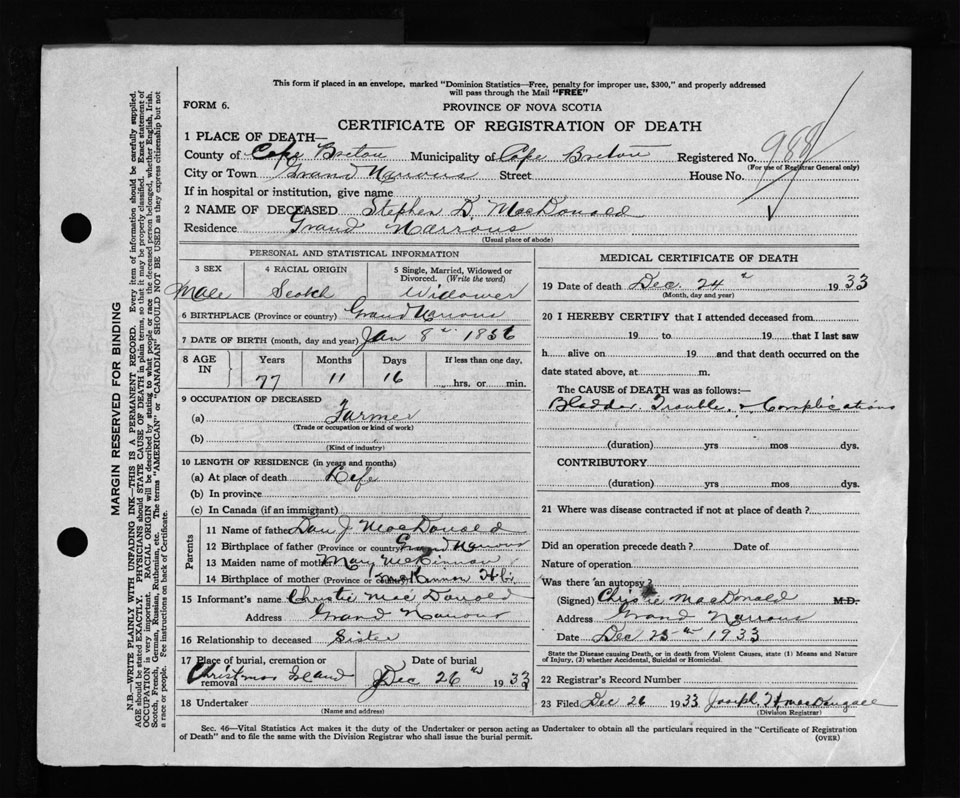 This form if placed in an envelope, marked "Dominion Statistics—Free, penalty for improper use, $300," and properly addressed
will pass through the Mail "FREE"
FORM 6.
PROVINCE OF NOVA SCOTIA
CERTIFICATE OF REGISTRATION OF DEATH
988
1 PLACE OF DEATH—
County of Cape Breton Municipality of Cape Breton Registered No.
(For use of Registrar General only)
City or Town Grand Narrows Street House No.
If in hospital or institution, give name
2 NAME OF DECEASED Stephen D. MacDonald
Residence Grand Narrows
(Usual place of abode)
PERSONAL AND STATISTICAL INFORMATION
3 SEX 4 RACIAL ORIGIN 5 Single, Married, Widowed or Divorced. (Write the word)
Male Scotch Widower
6 BIRTHPLACE (Province or country) Grand Narrows
7 DATE OF BIRTH (month, day and year) Jan 8th 1856
8 AGE IN Years Months Days If less than one day,
77 11 16 hrs. or min.
9 OCCUPATION OF DECEASED
(a) Farmer
(Trade or occupation or kind of work)
(b)
(Kind of industry)
10 LENGTH OF RESIDENCE (in years and months)
(a) At place of death Life
(b) In province
(c) In Canada (if an immigrant)
Parents
11 Name of father Dan J. MacDonald
12 Birthplace of father (Province or country) Grand Narrows
13 Maiden name of mother Mary McKinnon
14 Birthplace of mother (Province or McKinnon Hbr
15 Informant's name Christie MacDonald
Address Grand Narrows
16 Relationship to deceased Sister
17 Place of burial, cremation or removal Date of burial
Christmas Island Dec 26th 1933
18 Undertaker
(Name and address)
MEDICAL CERTIFICATE OF DEATH
19 Date of death Dec. 24th 1933
(Month, day and year)
20 I HEREBY CERTIFY that I attended deceased from
19 to 19 that I last saw
h alive on 19 and that death occurred on the
date stated above, at m.
The CAUSE of DEATH was as follows:—
Bladder Trouble & Complications
(duration) yrs mos dys.
CONTRIBUTORY
(duration) yrs mos dys.
21 Where was disease contracted if not at place of death?
Did an operation precede death? Date of
Nature of operation
Was there an autopsy?
(Signed) Christie MacDonald M.D.
Address Grand Narrows
Date Dec 25th 1933
State the Disease causing Death, or in death from Violent Causes, state (1) Means and Nature
of Injury, (2) whether Accidental, Suicidal or Homicidal.
22 Registrar's Record Number
23 Filed Dec 26 1933 Joseph H MacDougall
(Division Registrar)
Sec. 46—Vital Statistics Act makes it the duty of the Undertaker or person acting as Undertaker to obtain all the particulars required in the "Certificate of Registration
of Death" and to file the same with the Division Registrar who shall issue the burial permit.
(OVER)
MARGIN RESERVED FOR BINDING
N.B.—WRITE PLAINLY WITH UNFADING INK—THIS IS A PERMANENT RECORD. Every item of information should be carefully supplied.
AGE should be stated EXACTLY. PHYSICIANS should STATE CAUSE OF DEATH in plain terms, so that it may be properly classified. Exact statement of
OCCUPATION is very important. RACIAL ORIGIN will be described by stating to what people or race the deceased person belonged, whether English, Irish,
Scotch, French, German, Russian, Ruthenian, etc. The terms "AMERICAN" or "CANADIAN" SHOULD NOT BE USED as they express citizenship but not
a race or people. See instructions on back of Certificate.